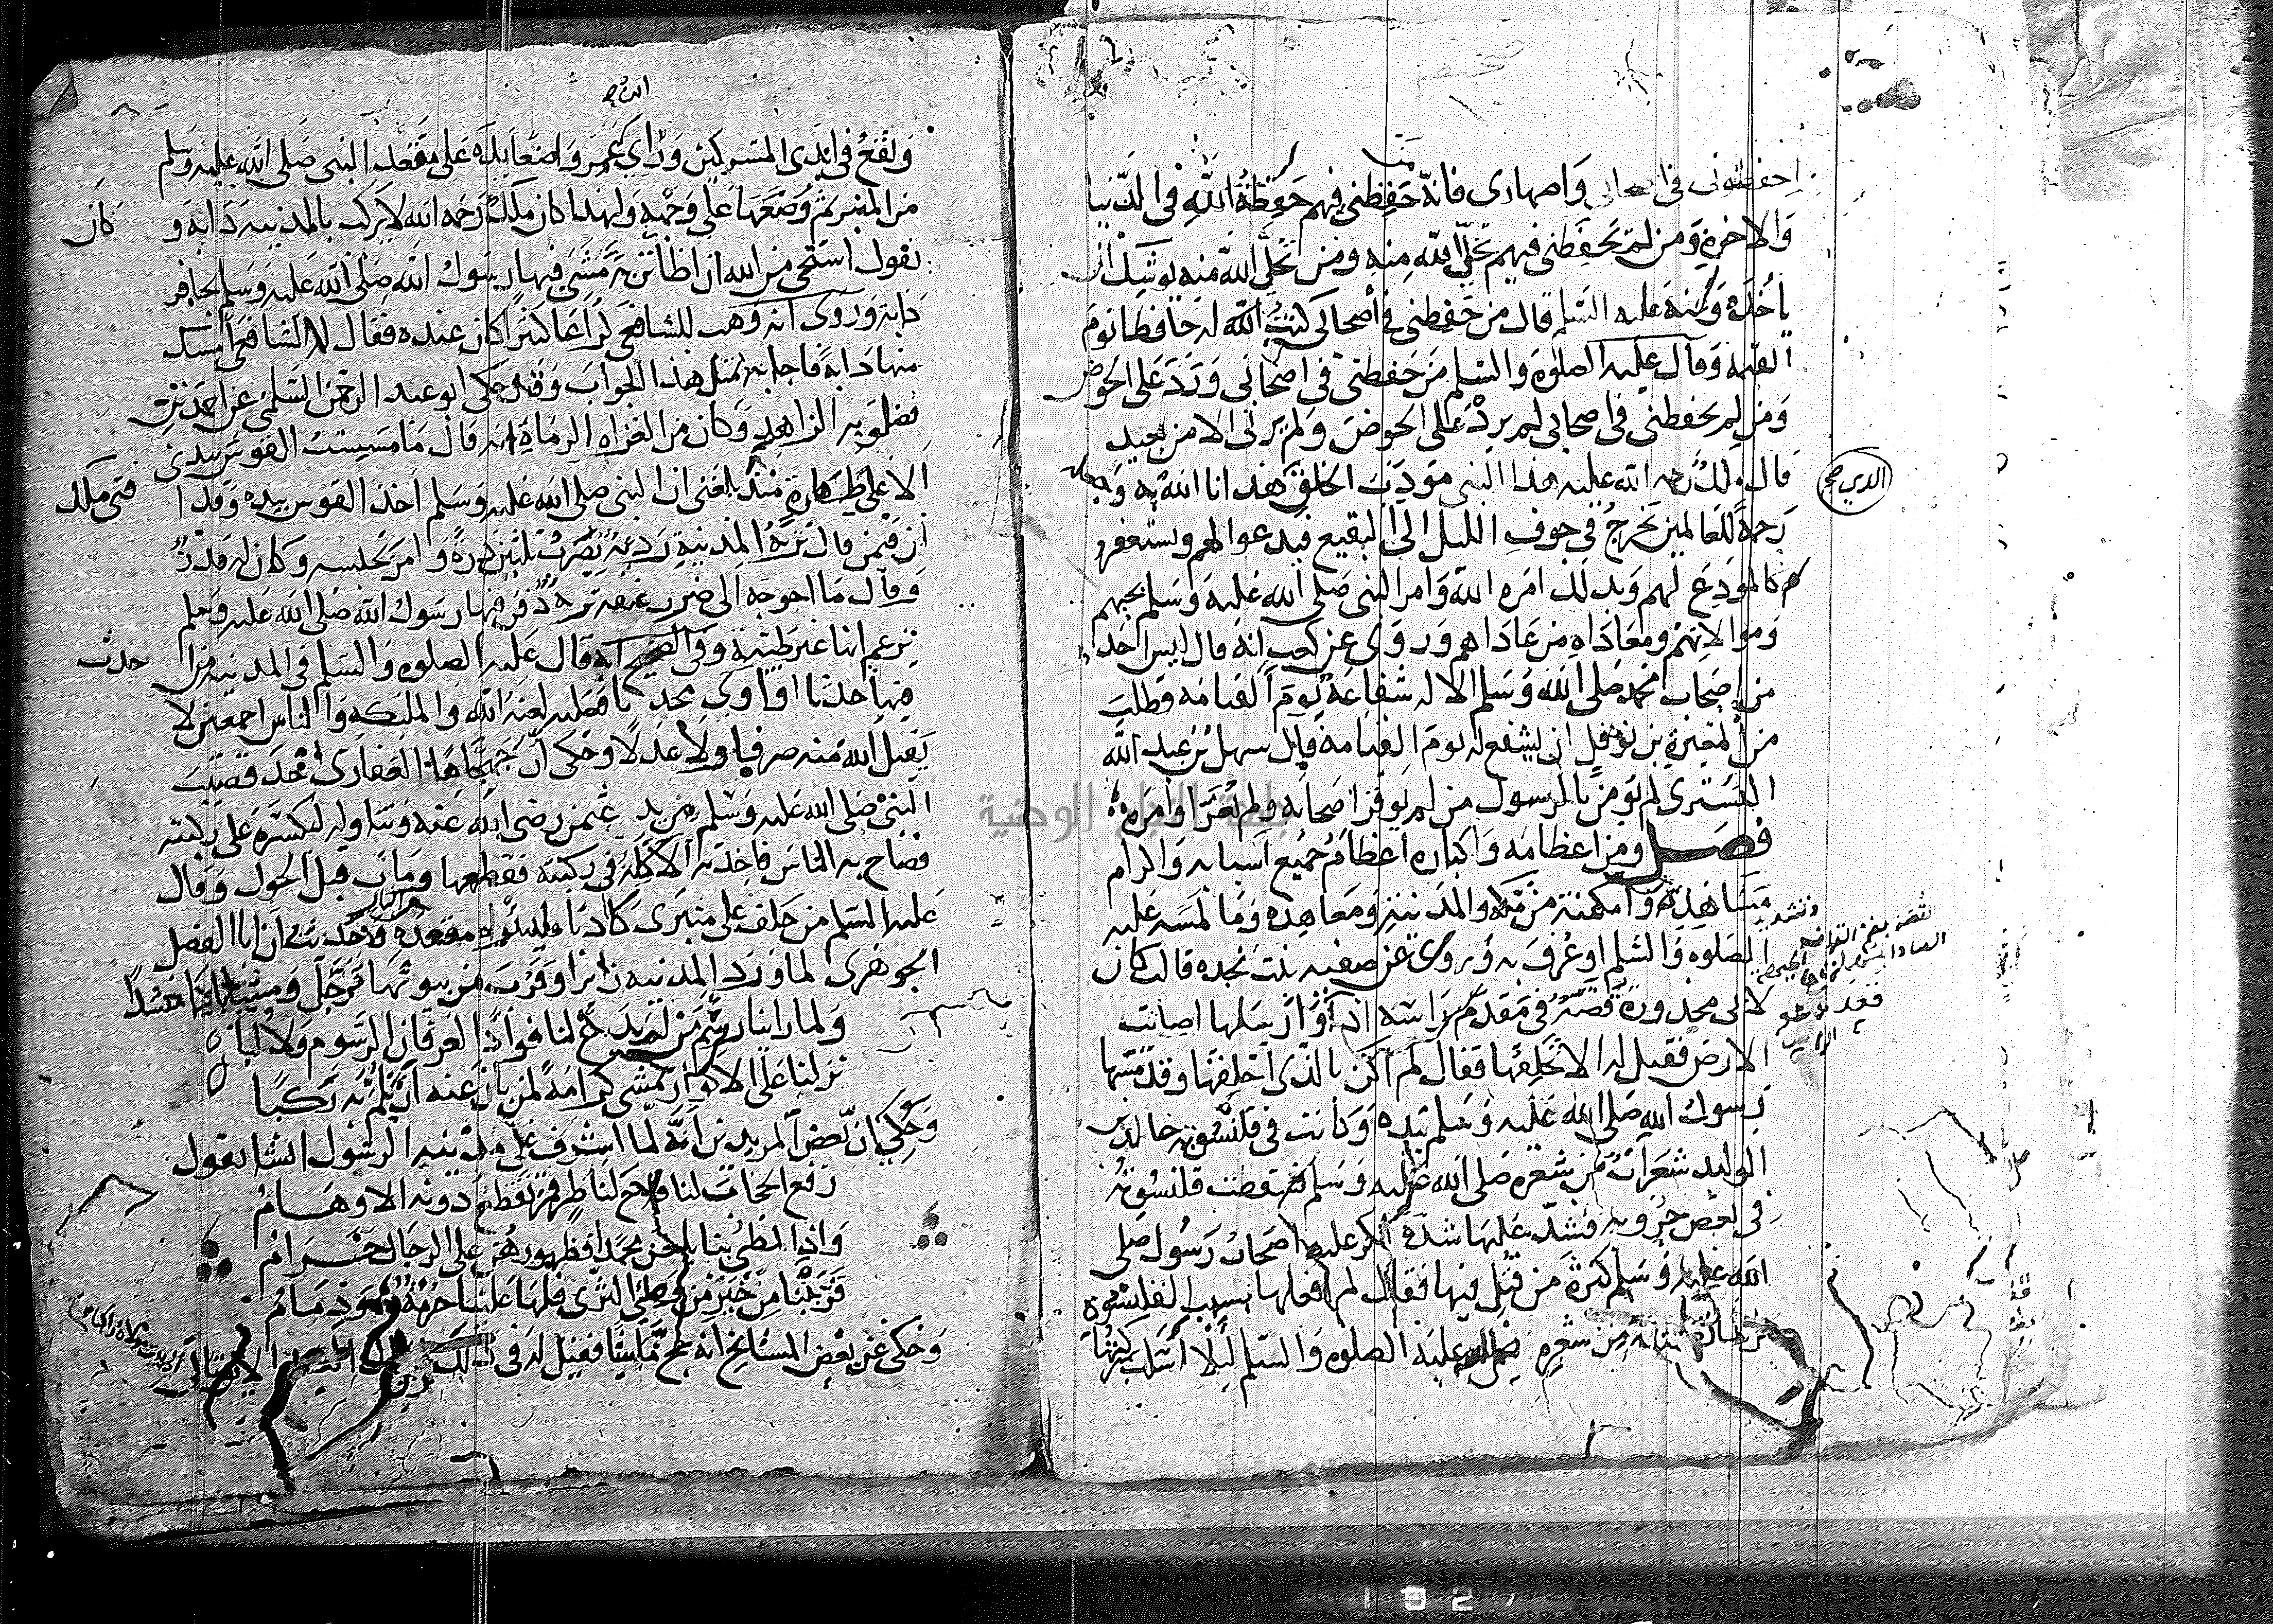 احفظوني في اصحابي وَاصهاري فانه من حَفِظني فيهم حَفِظَهُ اللّهُ في الدّنيا
وَالاخرة وَمن لم يَحفَظني فيهم تخلّى اللّه مِنه ومَن تخلّى اللّه منه يوشك ان
ياخذه وَعَنه عليه السّلم قال من حَفِظني في أصحابي كنتُ اللّه له حافظا يومَ
القيمه وَقال عَليه الصلوة وَالسّلم مَن حَفِظني في اصحابي وَرَدَ على الحَوض
وَمَن لم يحفظني في اصحابي لم يردْ على الحَوض وَلم يرني الا من بعيد
قال ملك رحمه الله عليه هذا النبي مؤدّبُ الخلق الذي هدانا اللهُ به وَجعله
رَحمةً للعَالمين يَخرجُ في جوفِ الليل الى البقيع فيدعوا لهم ويستغفر
كالمودّعِ لهم وَبذلك امَره اللّه وَامر النبي صَلى الله عَليه وَسَلم بحبهم
وَموالاتِهمْ ومعَادَاه مَن عَاداهم وَروَى عن كعب انه قال ليس احد
من اصحاب محمد صَلى الله وَسَلم الا له شفاعَة يَومَ القيامه وطلبَ
منَ المغيرةِ بن نوفل ان يشفع له يومَ القيامة قال سهل بن عبد الله
التستري لم يؤمن بالرسول من لم يوقر اصحابَه ولم يُعَزّ اوَامِرَه
فصل ومن اعظامه وَاكباره اعظامُ جميع اسبابه وَاكرام
مَشَاهِدِه وَامكنتهِ من مَكّة والمَدينةِ وَمَعاهدِه وَمَا لمسَه عليه
الصلوه وَالسّلم او عُرِفَ به وَروى عن صفيه بنت نجده قالت كان
لابى محذورة قُصّة في مقدم رَاسه اذا قَعَد وَارسلها اصابت
الارضَ فقيل له الا تَحلِقهَا فقال لم اكن بالذي احلِقهَا وَقد مسّها
رسول الله صَلى الله عَليه وَسَلم بيَده وَكانت في قلنسُوةِ خالد بن
الوليد شعرَات من شعَرِه صَلى الله عَليه وَسَلم فسقطت قلنسُوته
في بعض حُرُوبه فشدّ عَليهَا شدّة انكر عليه اصحابُ رَسُول صَلى
الله عَليه وَسَلم كثرةَ مَن قتِل فيها فقال لم افعلها بسبب القلنسُوة
بل لما تضمنته من شعرِه عليه الصلوه وَالسّلم لئلا اُسلَب بركتها
الذي صح
وَتقع في ايدي المشركين وَرُاي ابن عمر وَاضعًا يدَه عَلى مَقعَد النبي صَلى الله عليه وَسَلم
من المنبر ثم وَضَعَهَا على وَجهه وَلهذا كان ملك رَحمه الله لا يركب بالمدينه دابةً وَ
كانَ
يقول استَحي من الله ان اطا تربةً مَشَى فيها رسول الله صَلى الله عَليه وَسَلم بحافر
دابة وَرُوي انه وَهب للشافعي كُرَاعًا كثيرًا كان عنده فقال له الشافعي امسك
منها دَابة فاجابه بمثل هذا الجواب وَقد حكى ابو عبد الرحمن السّلمي عن احمد بن
فضلويه الزاهدِ وَكان من الغزاه الرماةِ انه قال مَا مَسِستُ القوسَ بيدي
الا على طهارة منذ بلغني ان النبي صلى الله عَليه وَسَلم اخذ القوس بيده وَقد ا
فتى ملك
فيمن قال تربةُ المدينةِ رَديّة يُضرَب ثلثين دِرّةً وَامرَ بحَبسه وَكان له قدْرٌ
وَقال مَا احوجه الى ضرب عنقه تربةٌ دُفن فيها رسول الله صَلى الله عَليه وَسَلم
يزعم انها غير طيّبةٍ وَفي الصحيح انه قال عَليه الصلوه وَالسّلم في المدينه من
حدث
فيها حدثا او آوى محدثا فعليه لعنه الله وَالملئكه وَالناس اجمعين لا
يَقبل الله منه صرفا ولا عَدلًا وَحكى أنّ جهجاهَا الغفارى اخذ قضيبَ
النبي صَلى الله عَليه وَسَلم من يد عثمن رضى الله عنه وَتناوله ليكسره عَلى ركبته
فصاح به الناس فاخذته الاكلة في ركبته فقطعها وَمات قبل الحَول وَقال
عَليه السّلم من حَلف على منبرى كاذبًا فليتبوا مقعده من النار وَحدثتُ أن ابا الفضل
الجوهَري لما وَرَد المدينه زائرا وَقرُبَ من بيوتهَا تَرجّل وَمشى باكيا منشدًا
وَلما راينا رسمَ من لم يَدَعْ لنا فوادًا لعرفان الرّسوم وَلا لبا
نزلنا عَلى الاكوَار نمشى كرامَةً لمن بانَ عنه أن نُلمّ به رَكبَا
وَحُكي ان بعضَ المريدين انّه لما اشرف على مدينه الرسُول انشا يقول
رفع الحجابُ لنا فلاحَ لناظرٍ قمرٌ تقطع دونه الاوهَامُ
وَاذا المطيّ بنا بلغن محمّدا فظهورُهُنّ على الرجال حَرامُ
قرّبننا من خير من وَطئ الثرى فلها عَلينا حُرمةٌ وَذمَامُ
وَحكى عَن بعضِ المشائخ انه حج مَاشيًا فقيل له في ذلك